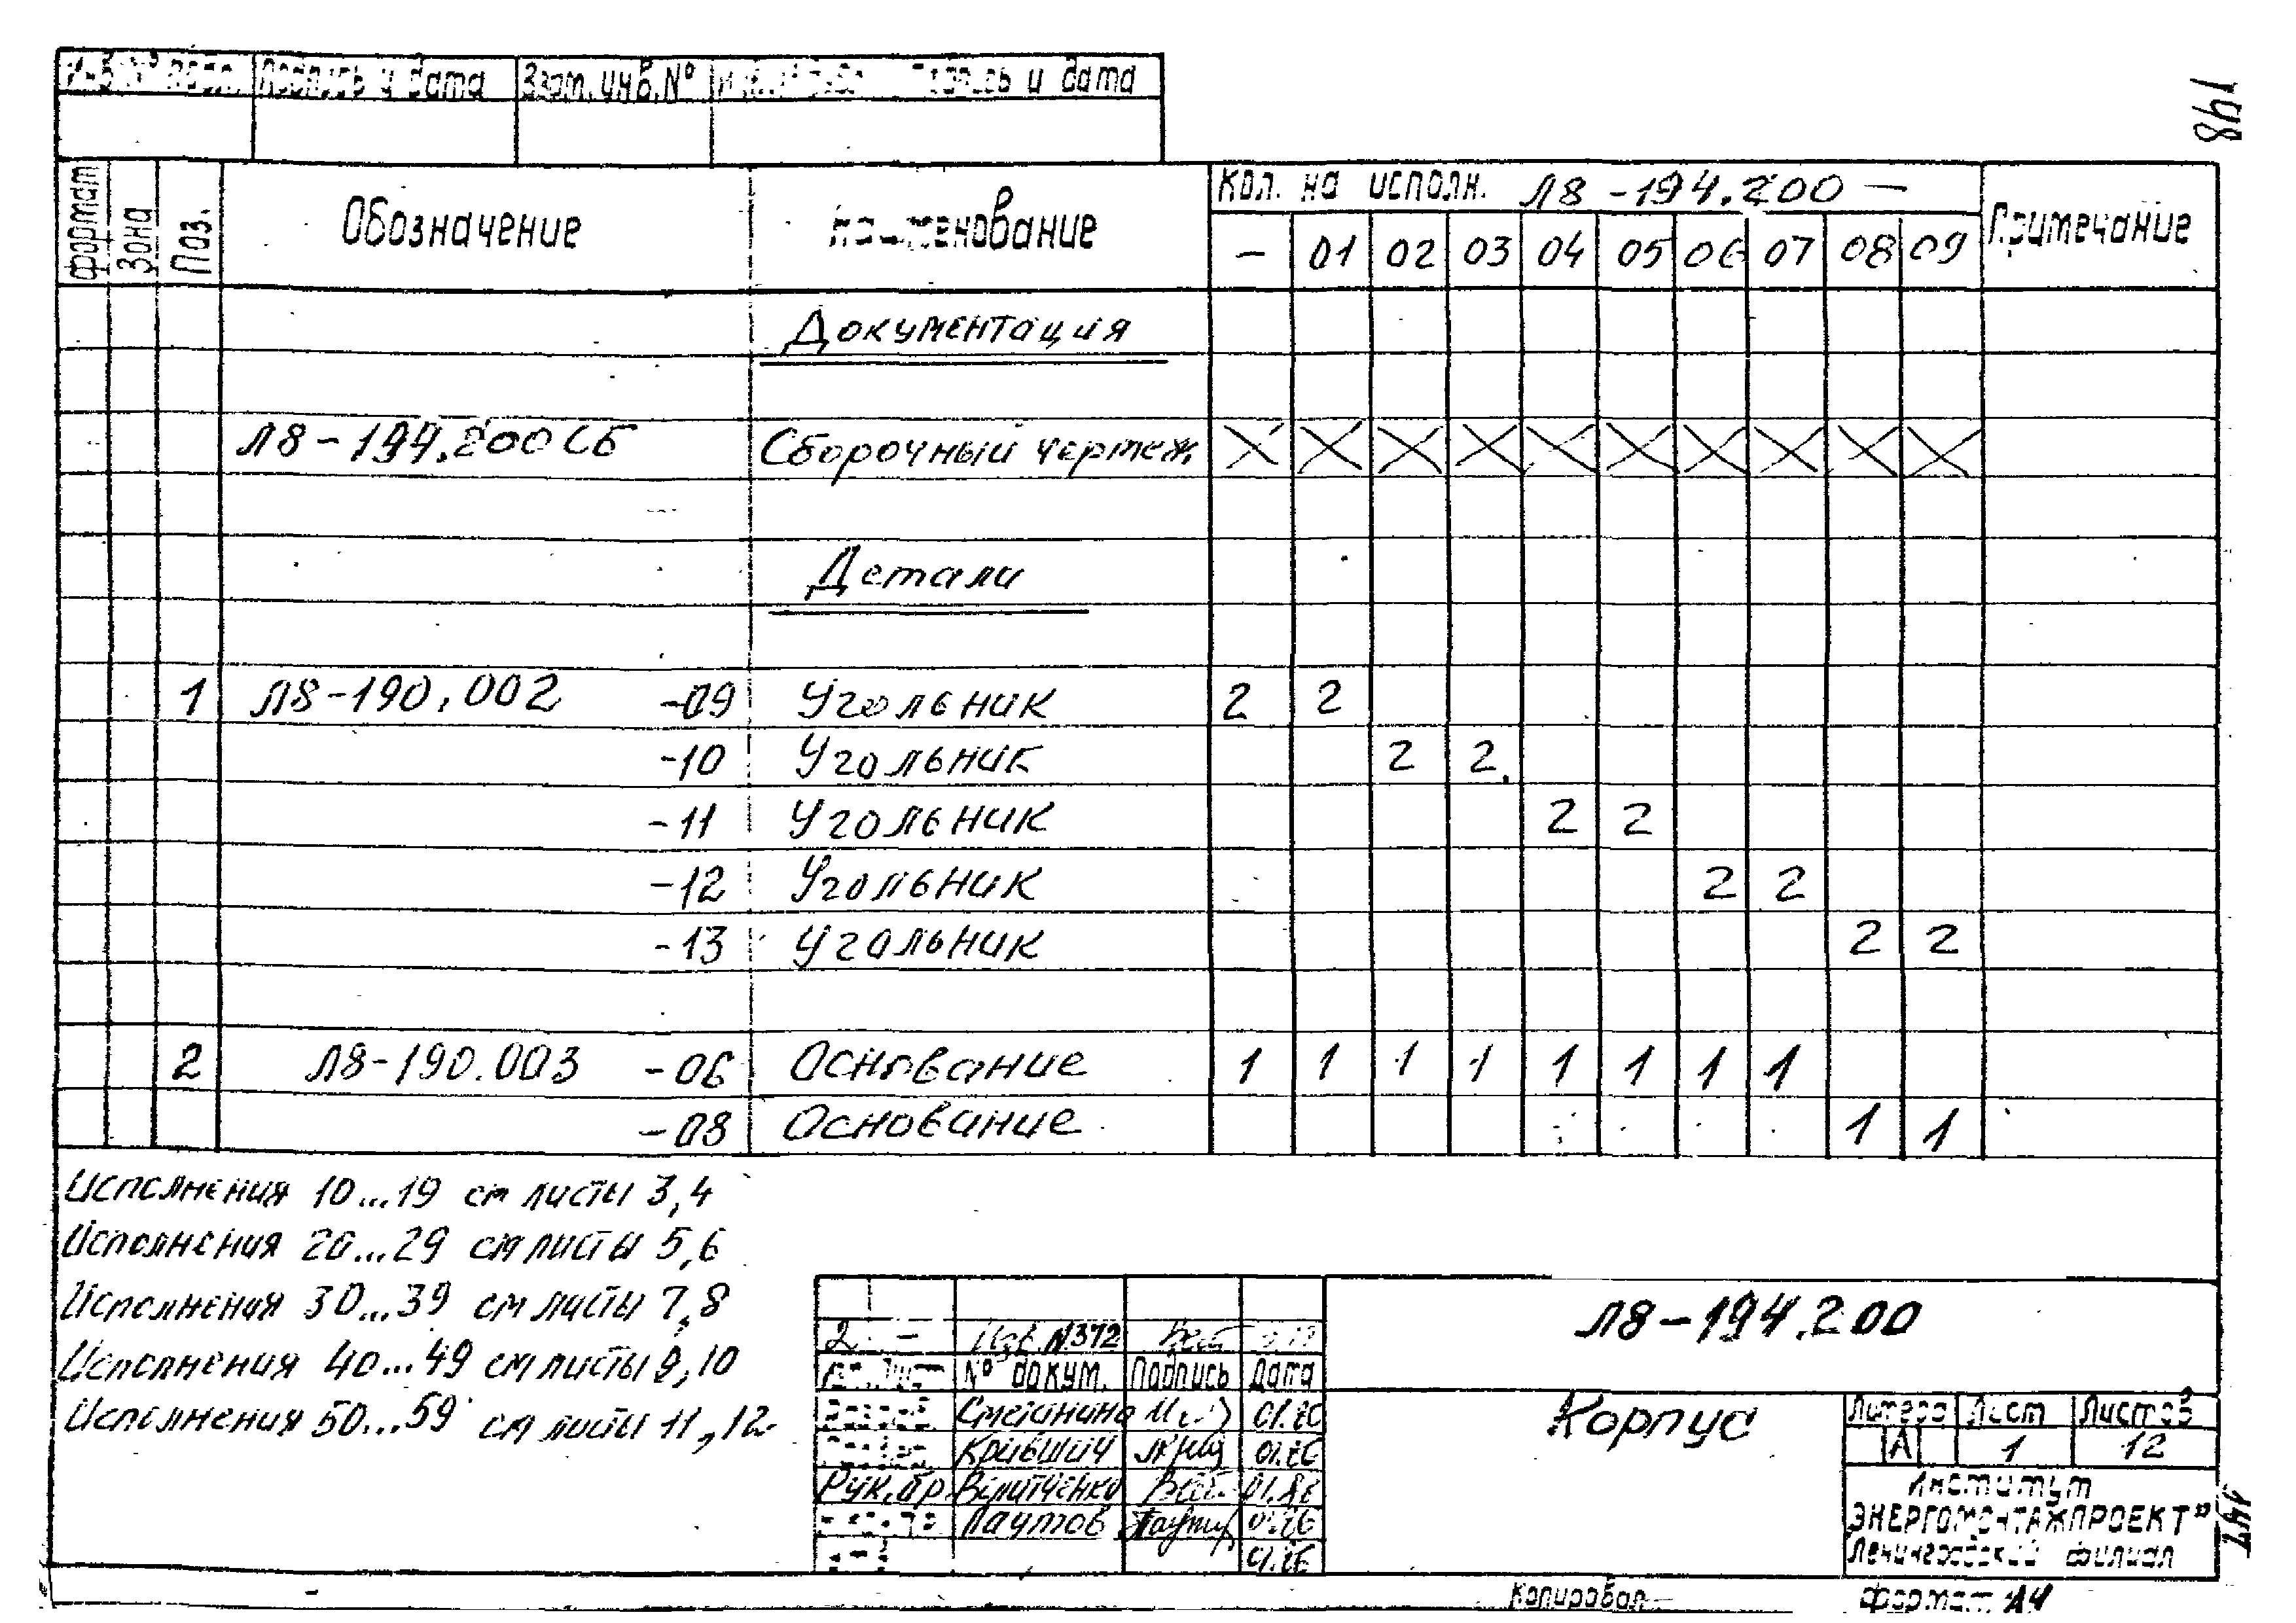 Подпись и дата Взам. инв. № Подпись и дата
148
формат Зона Поз. Обозначение Наименование Кол. на исполн. Л8-194.200- Примечание
- 01 02 03 04 05 06 07 08 09
Документация
Л8-194.200СБ Сборочный чертеж X X X X X X X X X X
Детали
1 Л8-190.002 -09 Угольник 2 2
-10 Угольник 2 2
-11 Угольник 2 2
-12 Угольник 2 2
-13 Угольник 2 2
2 Л8-190.003 -06 Основание 1 1 1 1 1 1 1 1
-08 Основание 1 1
Исполнения 10...19 см листы 3,4
Исполнения 20...29 см листы 5,6
Исполнения 30...39 см листы 7,8
Исполнения 40...49 см листы 9,10
Исполнения 50...59 см листы 11,12
Л8-194.200
2 - Изв. №372
Лист № докум. Подпись Дата
Корпус
Литера Лист Листов
А 1 12
Рук. бр. 01.86
Лаутов 01.86
01.86
Институт
ЭНЕРГОМОНТАЖПРОЕКТ"
Ленинградский филиал
147
Копировал
Формат А4